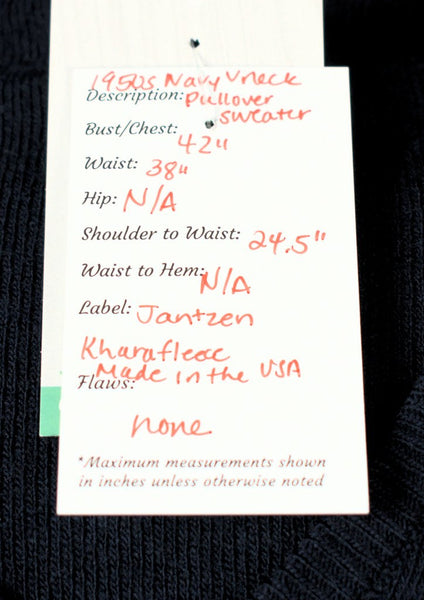 1950s Navy Vneck
Description: Pullover
Sweater
Bust/Chest: 42"
Waist: 38"
Hip: N/A
Shoulder to Waist: 24.5"
Waist to Hem: N/A
Label: Jantzen
Kharafleece
Made in the USA
Flaws:
none
*Maximum measurements shown
in inches unless otherwise noted